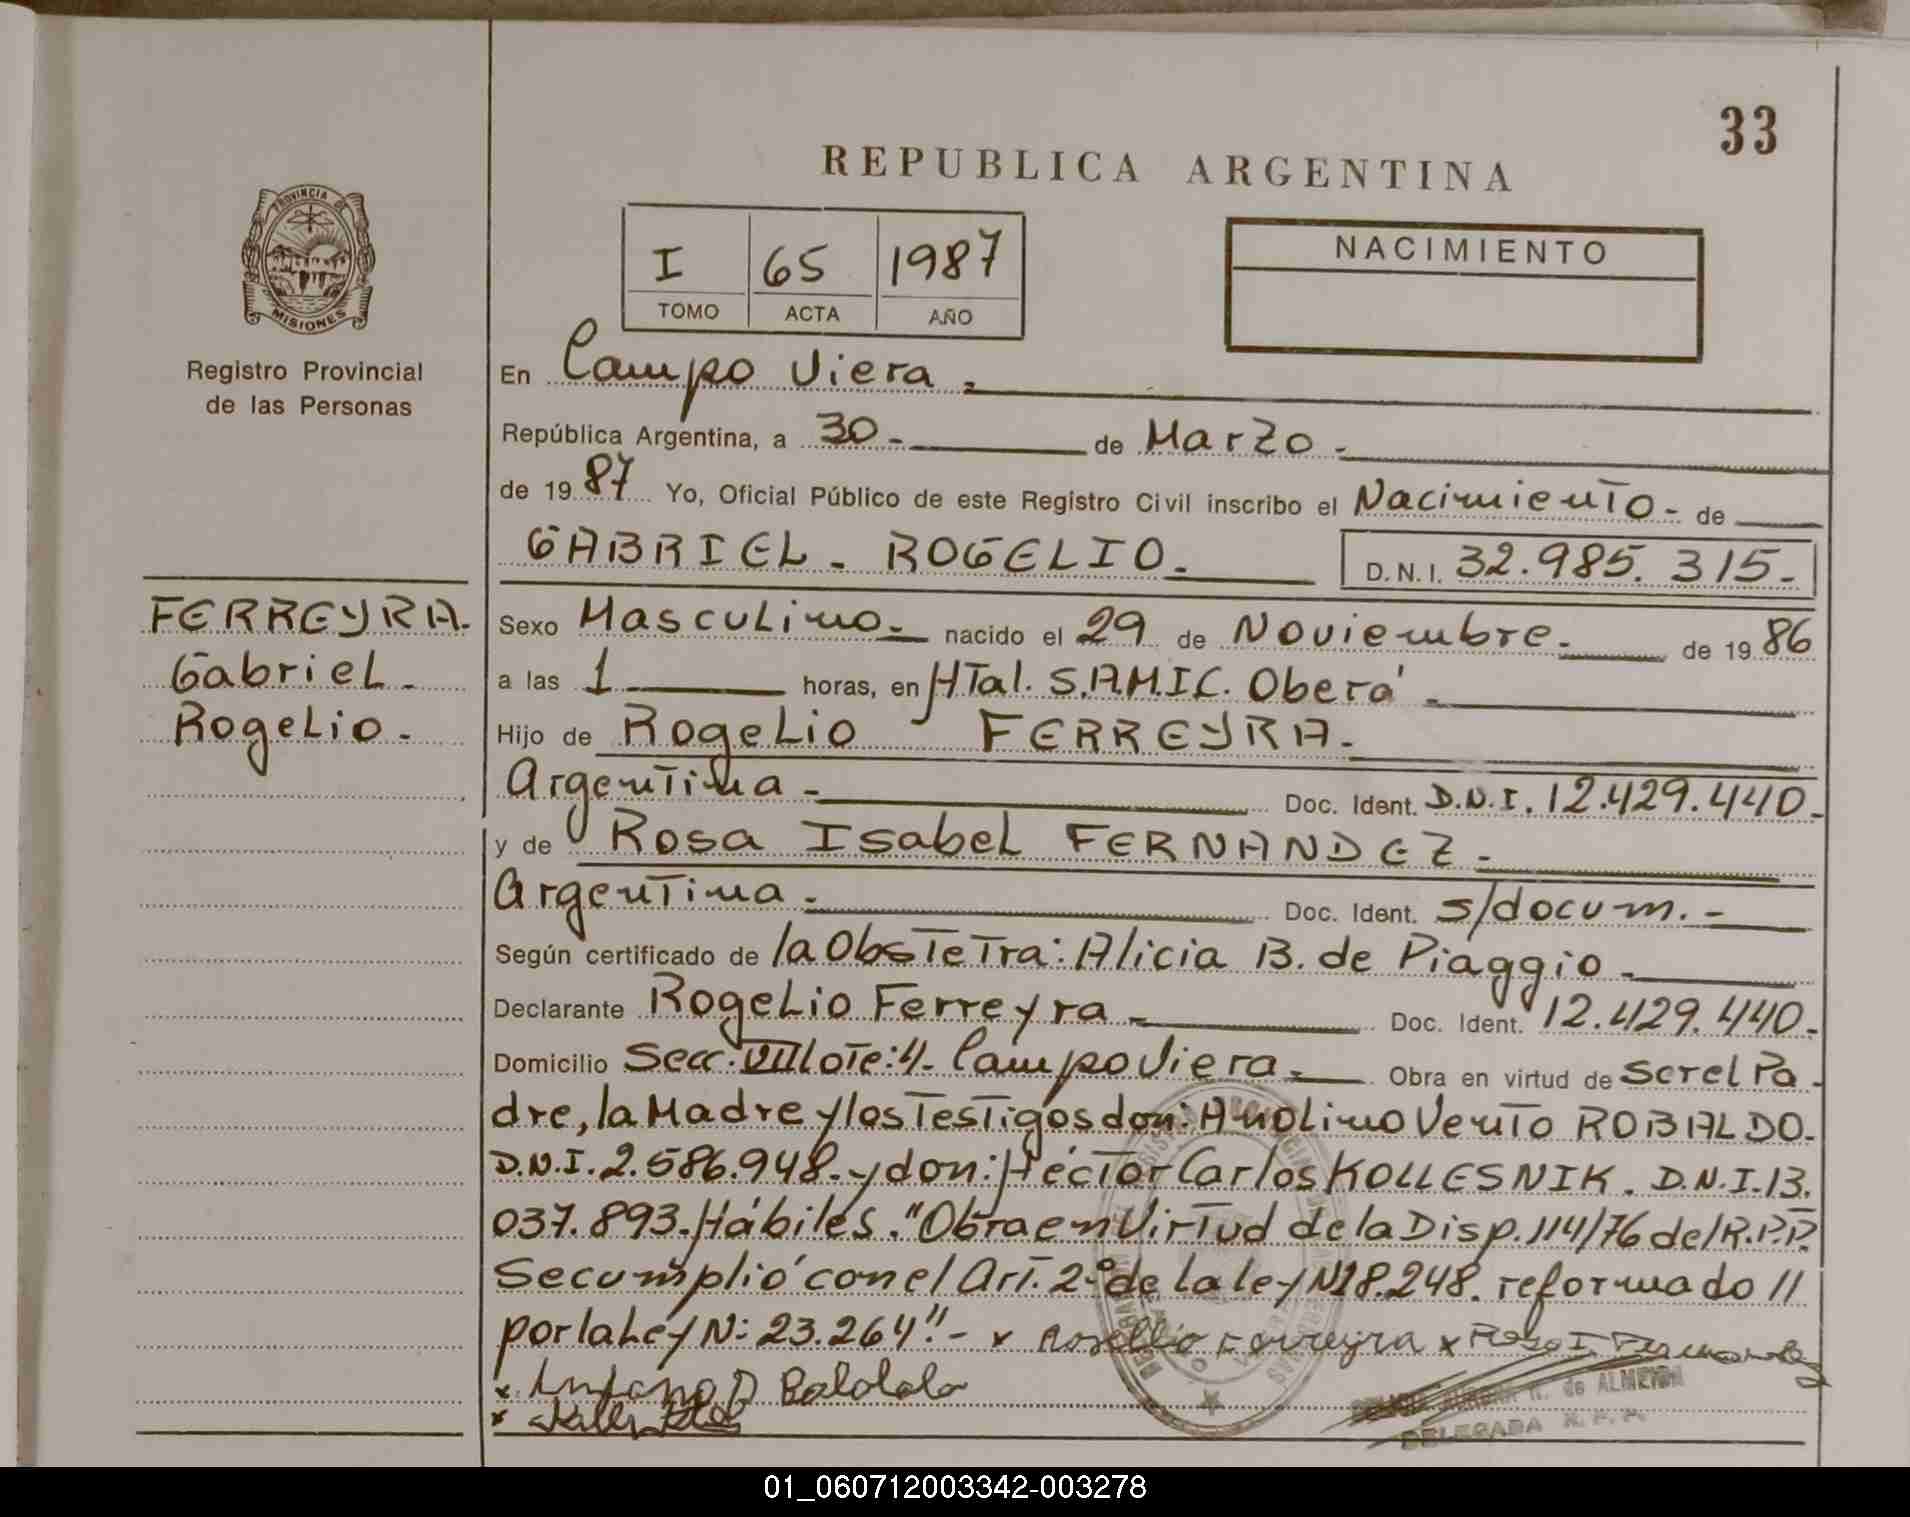 33
REPUBLICA ARGENTINA
PROVINCIA DE
MISIONES
Registro Provincial
de las Personas
I 65 1987
TOMO ACTA AÑO
NACIMIENTO
En Campo Viera.
República Argentina, a 30 - de Marzo -
de 1987 Yo, Oficial Público de este Registro Civil inscribo el Nacimiento - de
GABRIEL - ROGELIO - D.N.I. 32.985.315-
FERREYRA.
Gabriel -
Rogelio -
Sexo Masculino - nacido el 29 de Noviembre - de 1986
a las 1 horas, en HTal. S.A.M.I.C. Oberá -
Hijo de Rogelio FERREYRA -
Argentina - Doc. Ident. D.N.I. 12.429.440-
y de Rosa Isabel FERNANDEZ -
Argentina - Doc. Ident. s/docum. -
Según certificado de la Obstetra: Alicia B. de Piaggio -
Declarante Rogelio Ferreyra - Doc. Ident. 12.429.440-
Domicilio Secc. VIII Lote: 4 - Campo Viera - Obra en virtud de ser el Pa-
dre, la Madre y los Testigos don: Anolino Vento ROBALDO.
D.N.I. 2.586.948. y don: Héctor Carlos KOLLESNIK. D.N.I. 13.
037.893. Hábiles. "Obra en Virtud de la Disp. 114/76 del R.P.P.
Se cumplió con el Art. 2º de la ley N 18.248. reformado //
por la Ley N: 23.264". - x Rogelio Ferreyra x Rosa I Fernandez
x
x
de ALMEIDA
DELEGADA R.P.P.
01_060712003342-003278